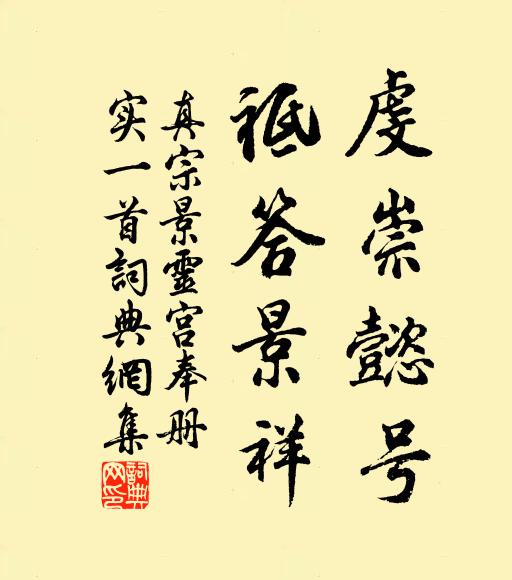 虔崇懿号
祗答景祥
真宗景靈宫奉册
实一首詞典網集
詞典網印